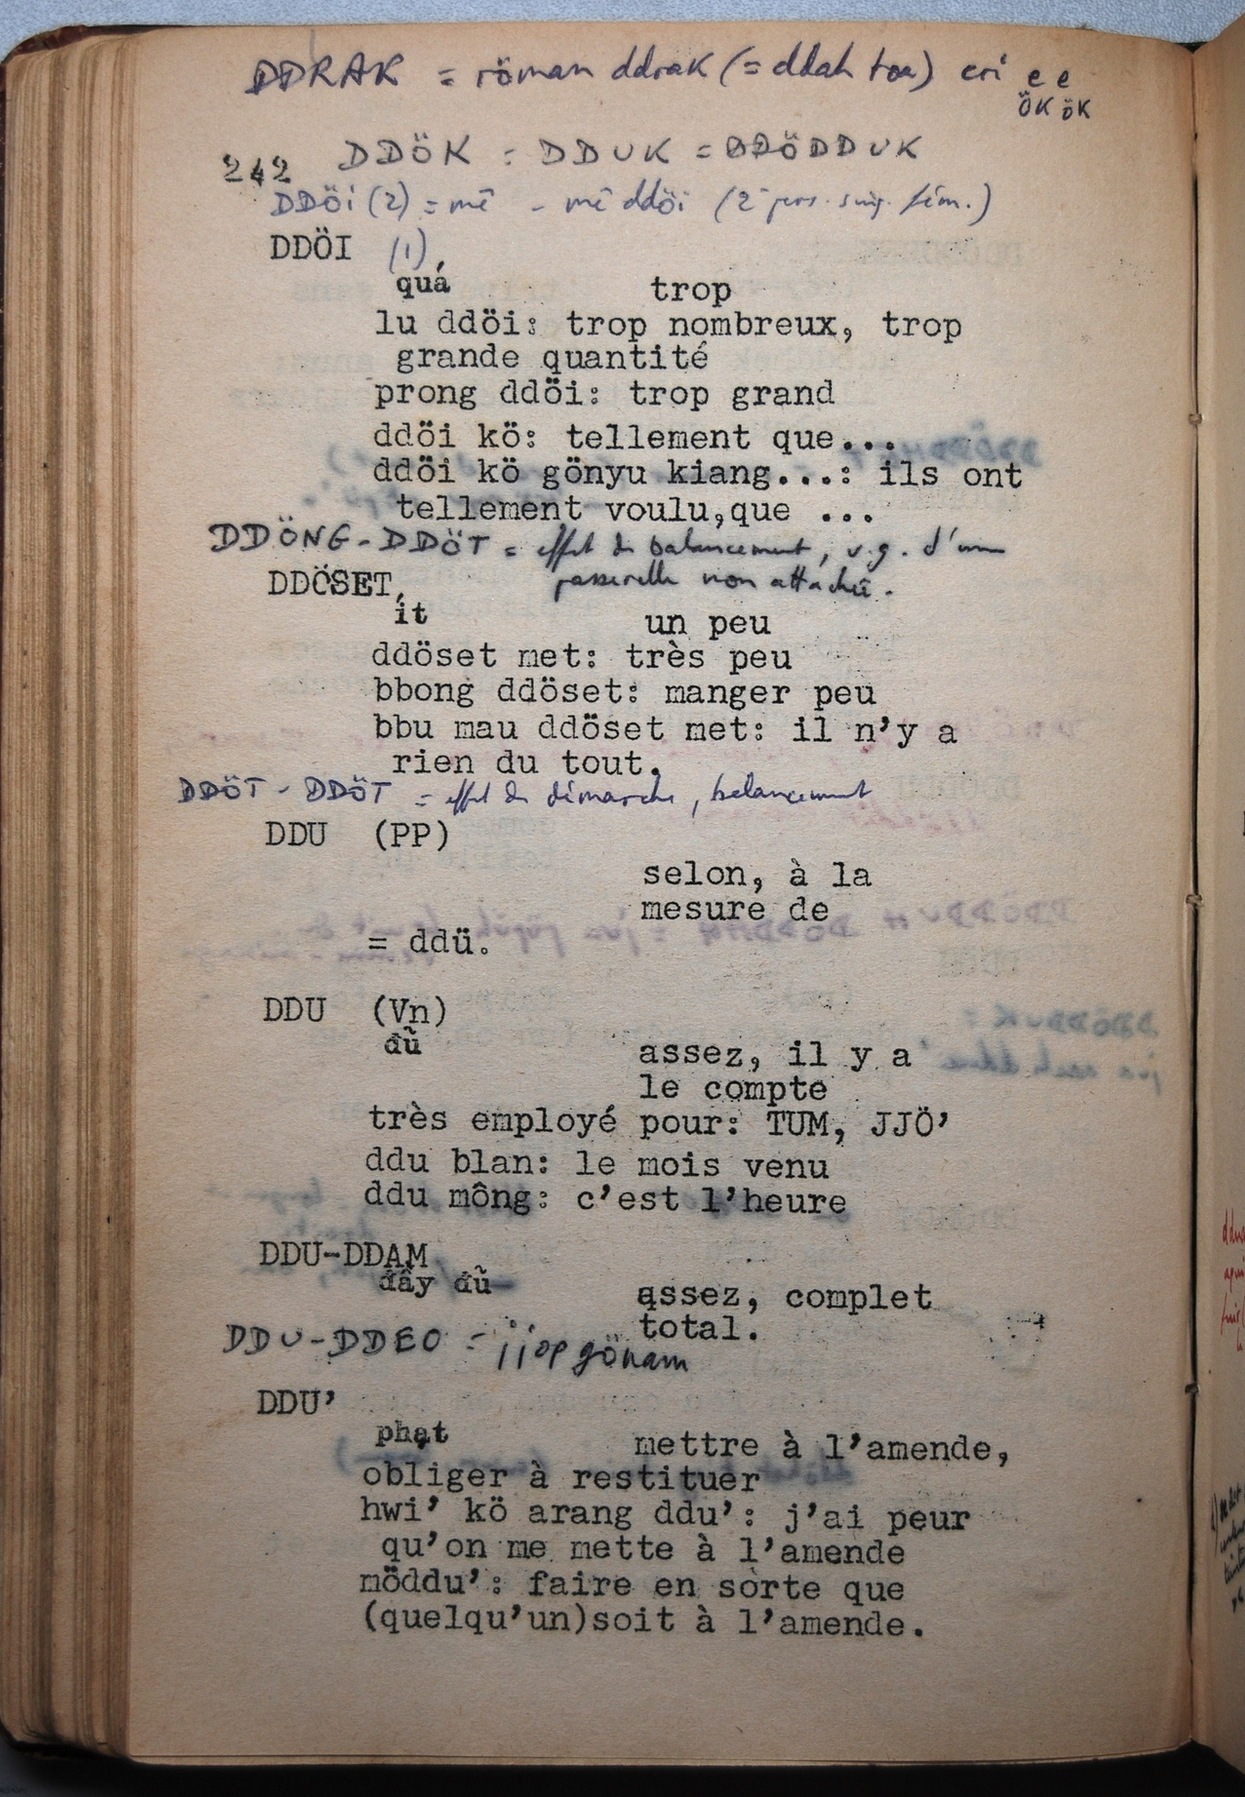 DDRAK = röman ddrak (= ddah toa) eri e e
ÖK ÖK
DDÖK = DDUK = DDÖDDUK
242
DDÖi (2) = mê - mê ddöi (2e pers. sing. fém.)
DDÖI (1)
quá trop
lu ddöi: trop nombreux, trop
grande quantité
prong ddöi: trop grand
ddöi kö: tellement que...
ddöi kö gönyu kiang...: ils ont
tellement voulu,que ...
DDÖNG-DDÖT = effet de balancement, v.g. d'une
passerelle non attachée.
DDÖSET
ít un peu
ddöset met: très peu
bbong ddöset: manger peu
bbu mau ddöset met: il n'y a
rien du tout.
DDÖT-DDÖT = effet de démarche, balancement
DDU (PP)
selon, à la
mesure de
= ddü.
DDU (Vn)
đũ assez, il y a
le compte
très employé pour: TUM, JJÖ'
ddu blan: le mois venu
ddu mông: c'est l'heure
DDU-DDAM
đầy đũ assez, complet
total.
DDU-DDEO = jjop gönam
DDU'
phạt mettre à l'amende,
obliger à restituer
hwi' kö arang ddu': j'ai peur
qu'on me mette à l'amende
möddu': faire en sorte que
(quelqu'un)soit à l'amende.